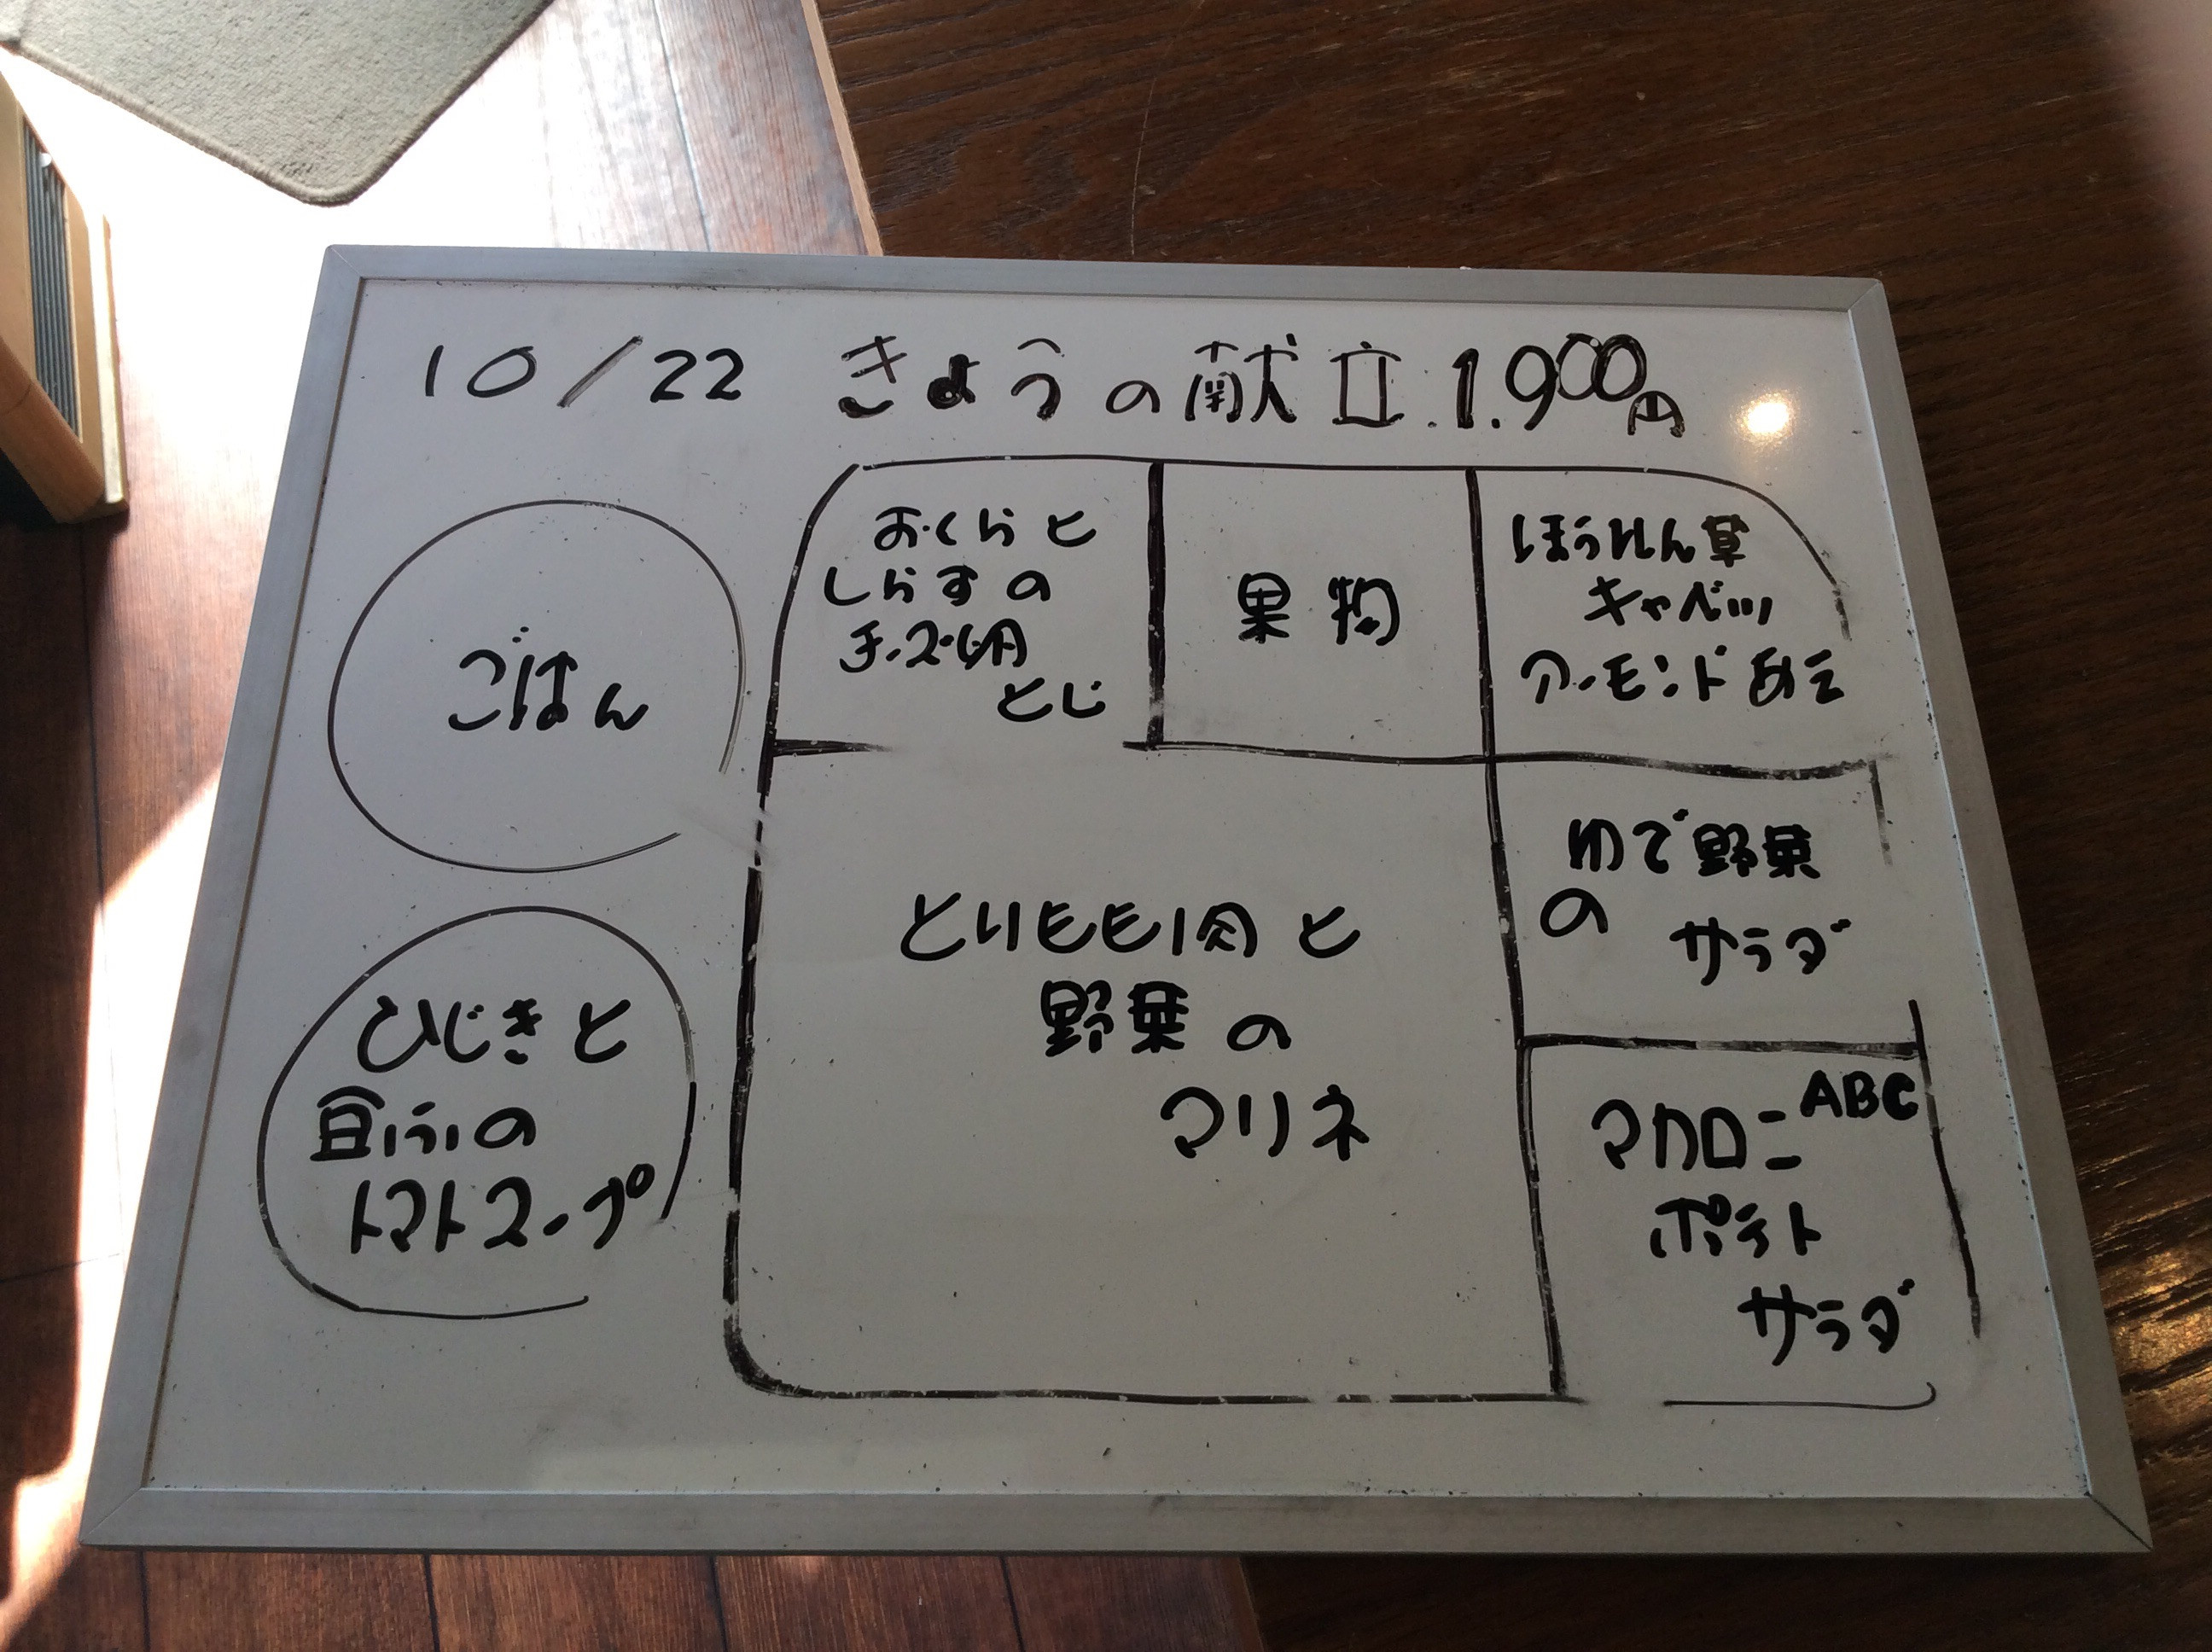 10/22 きょうの献立 1.900円
ごはん
ひじきと
豆ふの
トマトスープ
おくらと
しらすの
チーズ卵
とじ
果物
ほうれん草
キャベツ
アーモンドあえ
とりもも肉と
野菜の
マリネ
ゆで野菜
の サラダ
マカロニABC
ポテト
サラダ